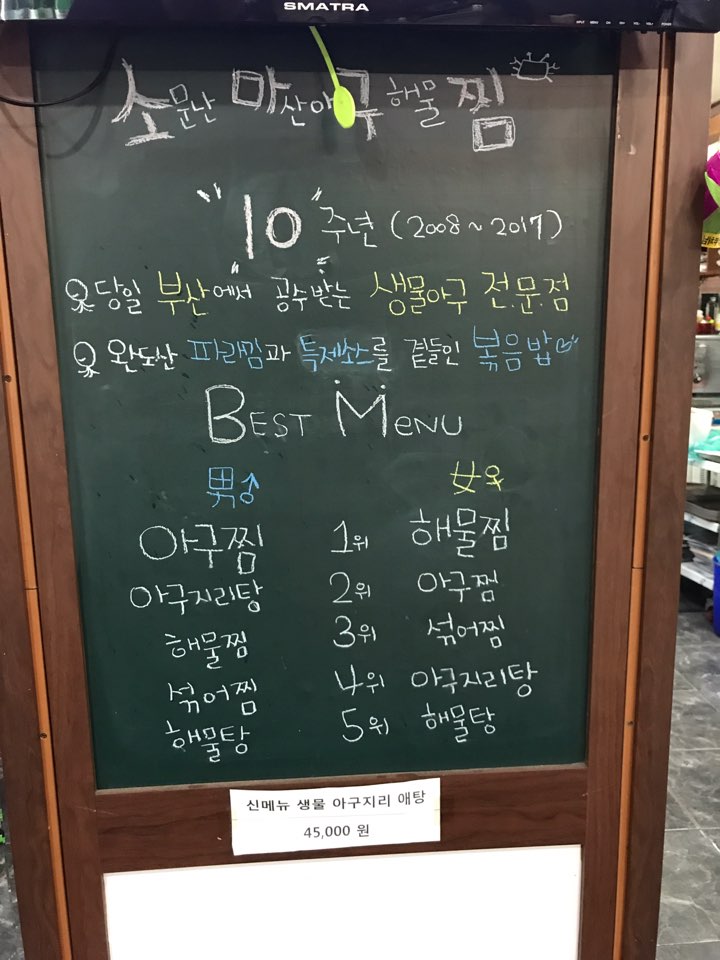 SMATRA
소문난 마산아구해물찜
"10"주년 (2008~2017)
당일 부산에서 공수받는 생물아구 전.문.점
완도산 파래김과 특제소스를 곁들인 볶음밥
BEST MENU
男♂ 女♀
아구찜 1위 해물찜
아구지리탕 2위 아구찜
해물찜 3위 섞어찜
섞어찜 4위 아구지리탕
해물탕 5위 해물탕
신메뉴 생물 아구지리 애탕
45,000 원